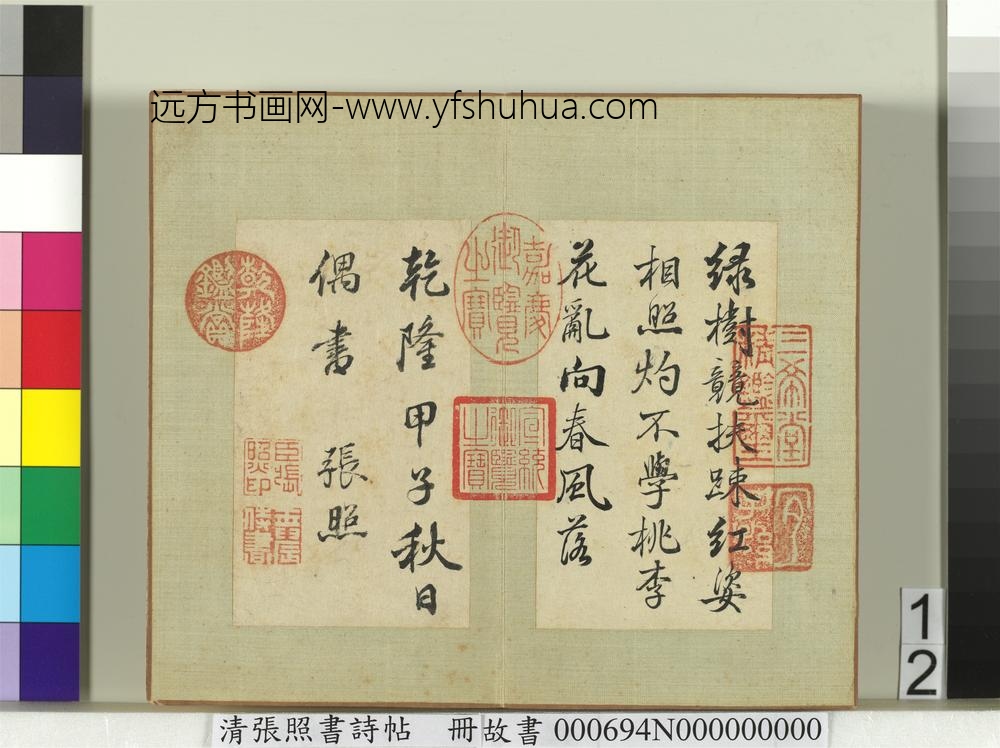 远方书画网-www.yfshuhua.com
绿樹競扶踈红姿
相照灼不學桃李
花亂向春風落
乾隆甲子秋日
偶書 張照
三希堂
精鑑璽
宜子孫
嘉慶
御覽
之寶
宣統
御覽
之寶
乾隆
鑑賞
臣張
照印
12
清張照書詩帖 冊故書 000694N000000000